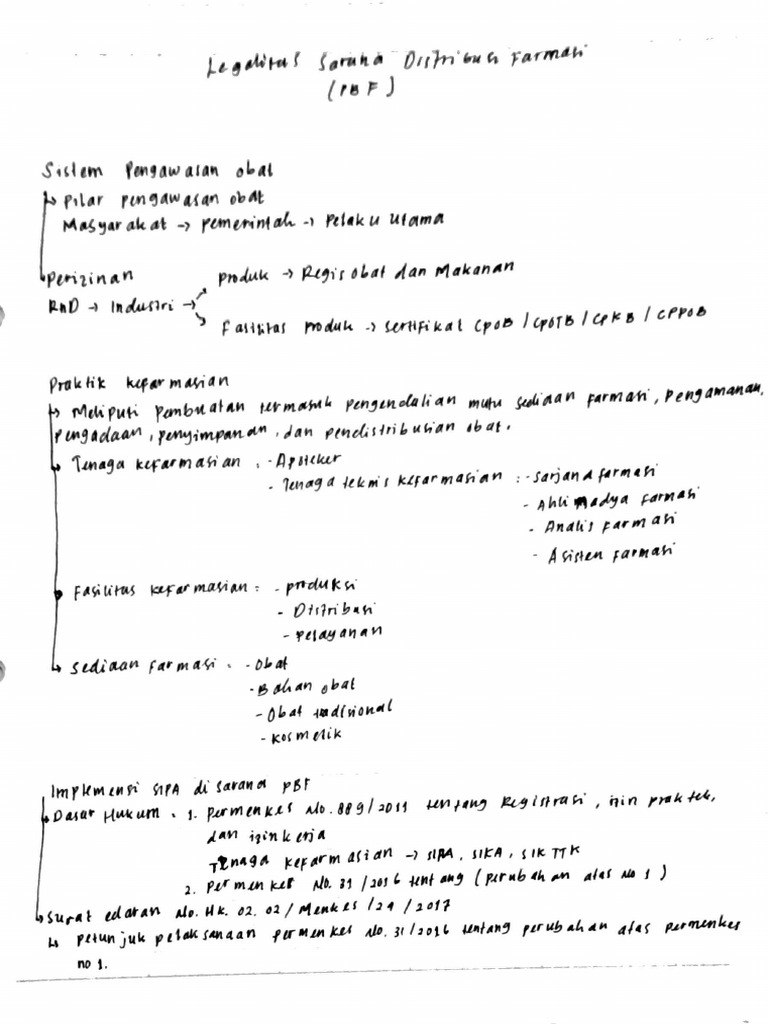 Legalitas Sarana Distribusi Farmasi
(PBF)
Sistem Pengawasan obat
↳ Pilar pengawasan obat
Masyarakat → pemerintah → Pelaku Utama
↳ Perizinan
Produk → Regis obat dan Makanan
RnD → Industri →
Fasilitas produk → sertifikat CPOB / CPOTB / CPKB / CPPOB
Praktik kefarmasian
↳ Meliputi pembuatan termasuk pengendalian mutu sediaan farmasi, pengamanan,
pengadaan, penyimpanan, dan pendistribusian obat.
↳ Tenaga kefarmasian : - Apoteker
- Tenaga teknis kefarmasian : - sarjana farmasi
- Ahli Madya farmasi
- Analis farmasi
- Asisten farmasi
↳ Fasilitas kefarmasian : - produksi
- Distribusi
- pelayanan
↳ Sediaan farmasi : - Obat
- Bahan obat
- Obat tradisional
- kosmetik
Implemensi SIPA di sarana PBF
↳ Dasar Hukum : 1. Permenkes No. 889/2011 tentang Registrasi, izin praktek,
dan izin kerja
Tenaga kefarmasian → SIPA, SIKA, SIKTTK
2. Permenkes No. 31 /2016 tentang (perubahan atas no 1)
↳ Surat edaran No. Hk. 02. 02 / Menkes /24 / 2017
↳ petunjuk pelaksanaan permenkes No. 31/2016 tentang perubahan atas permenkes
no 1.